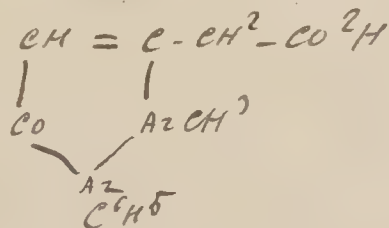 CH = C - CH² - CO²H
CO AzCH³
Az
C⁶H⁵